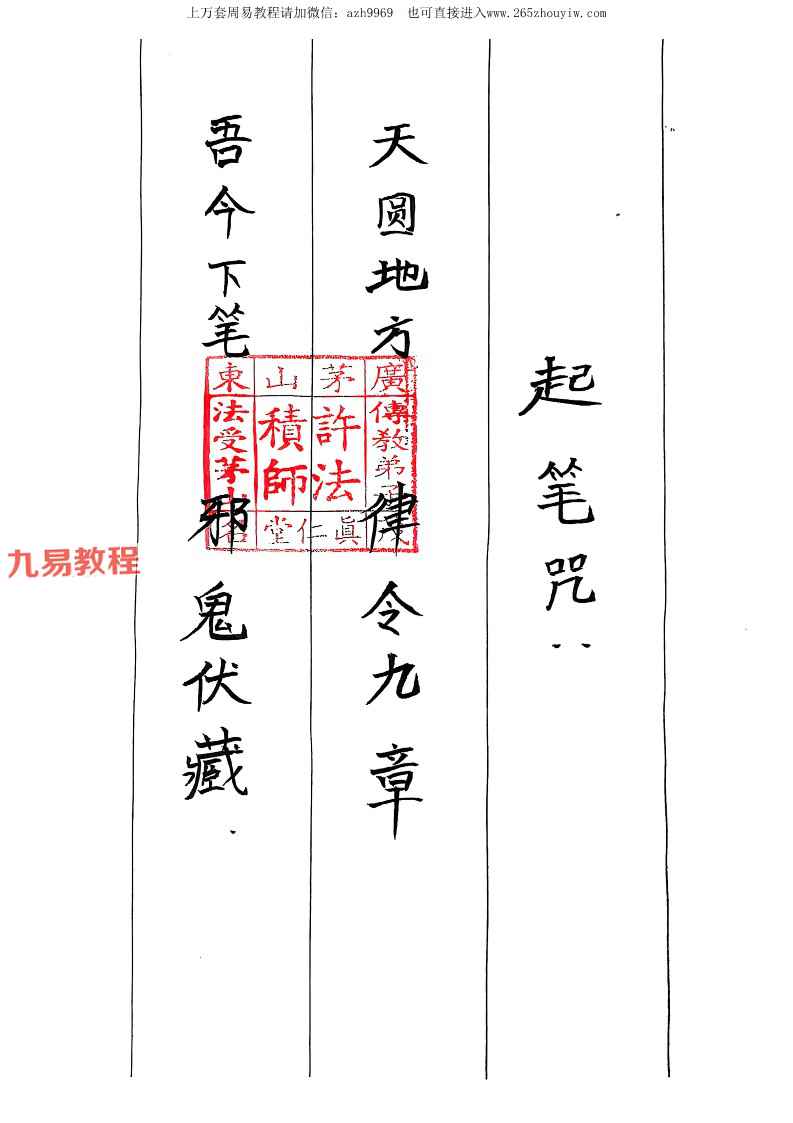 上万套周易教程请加微信：azh9969 也可直接进入www.265zhouyiw.com
起笔咒
天圆地方 律令九章
吾今下笔 邪鬼伏藏
廣東茅山
傳教弟
許法
積師
法受茅
眞仁堂
九易教程